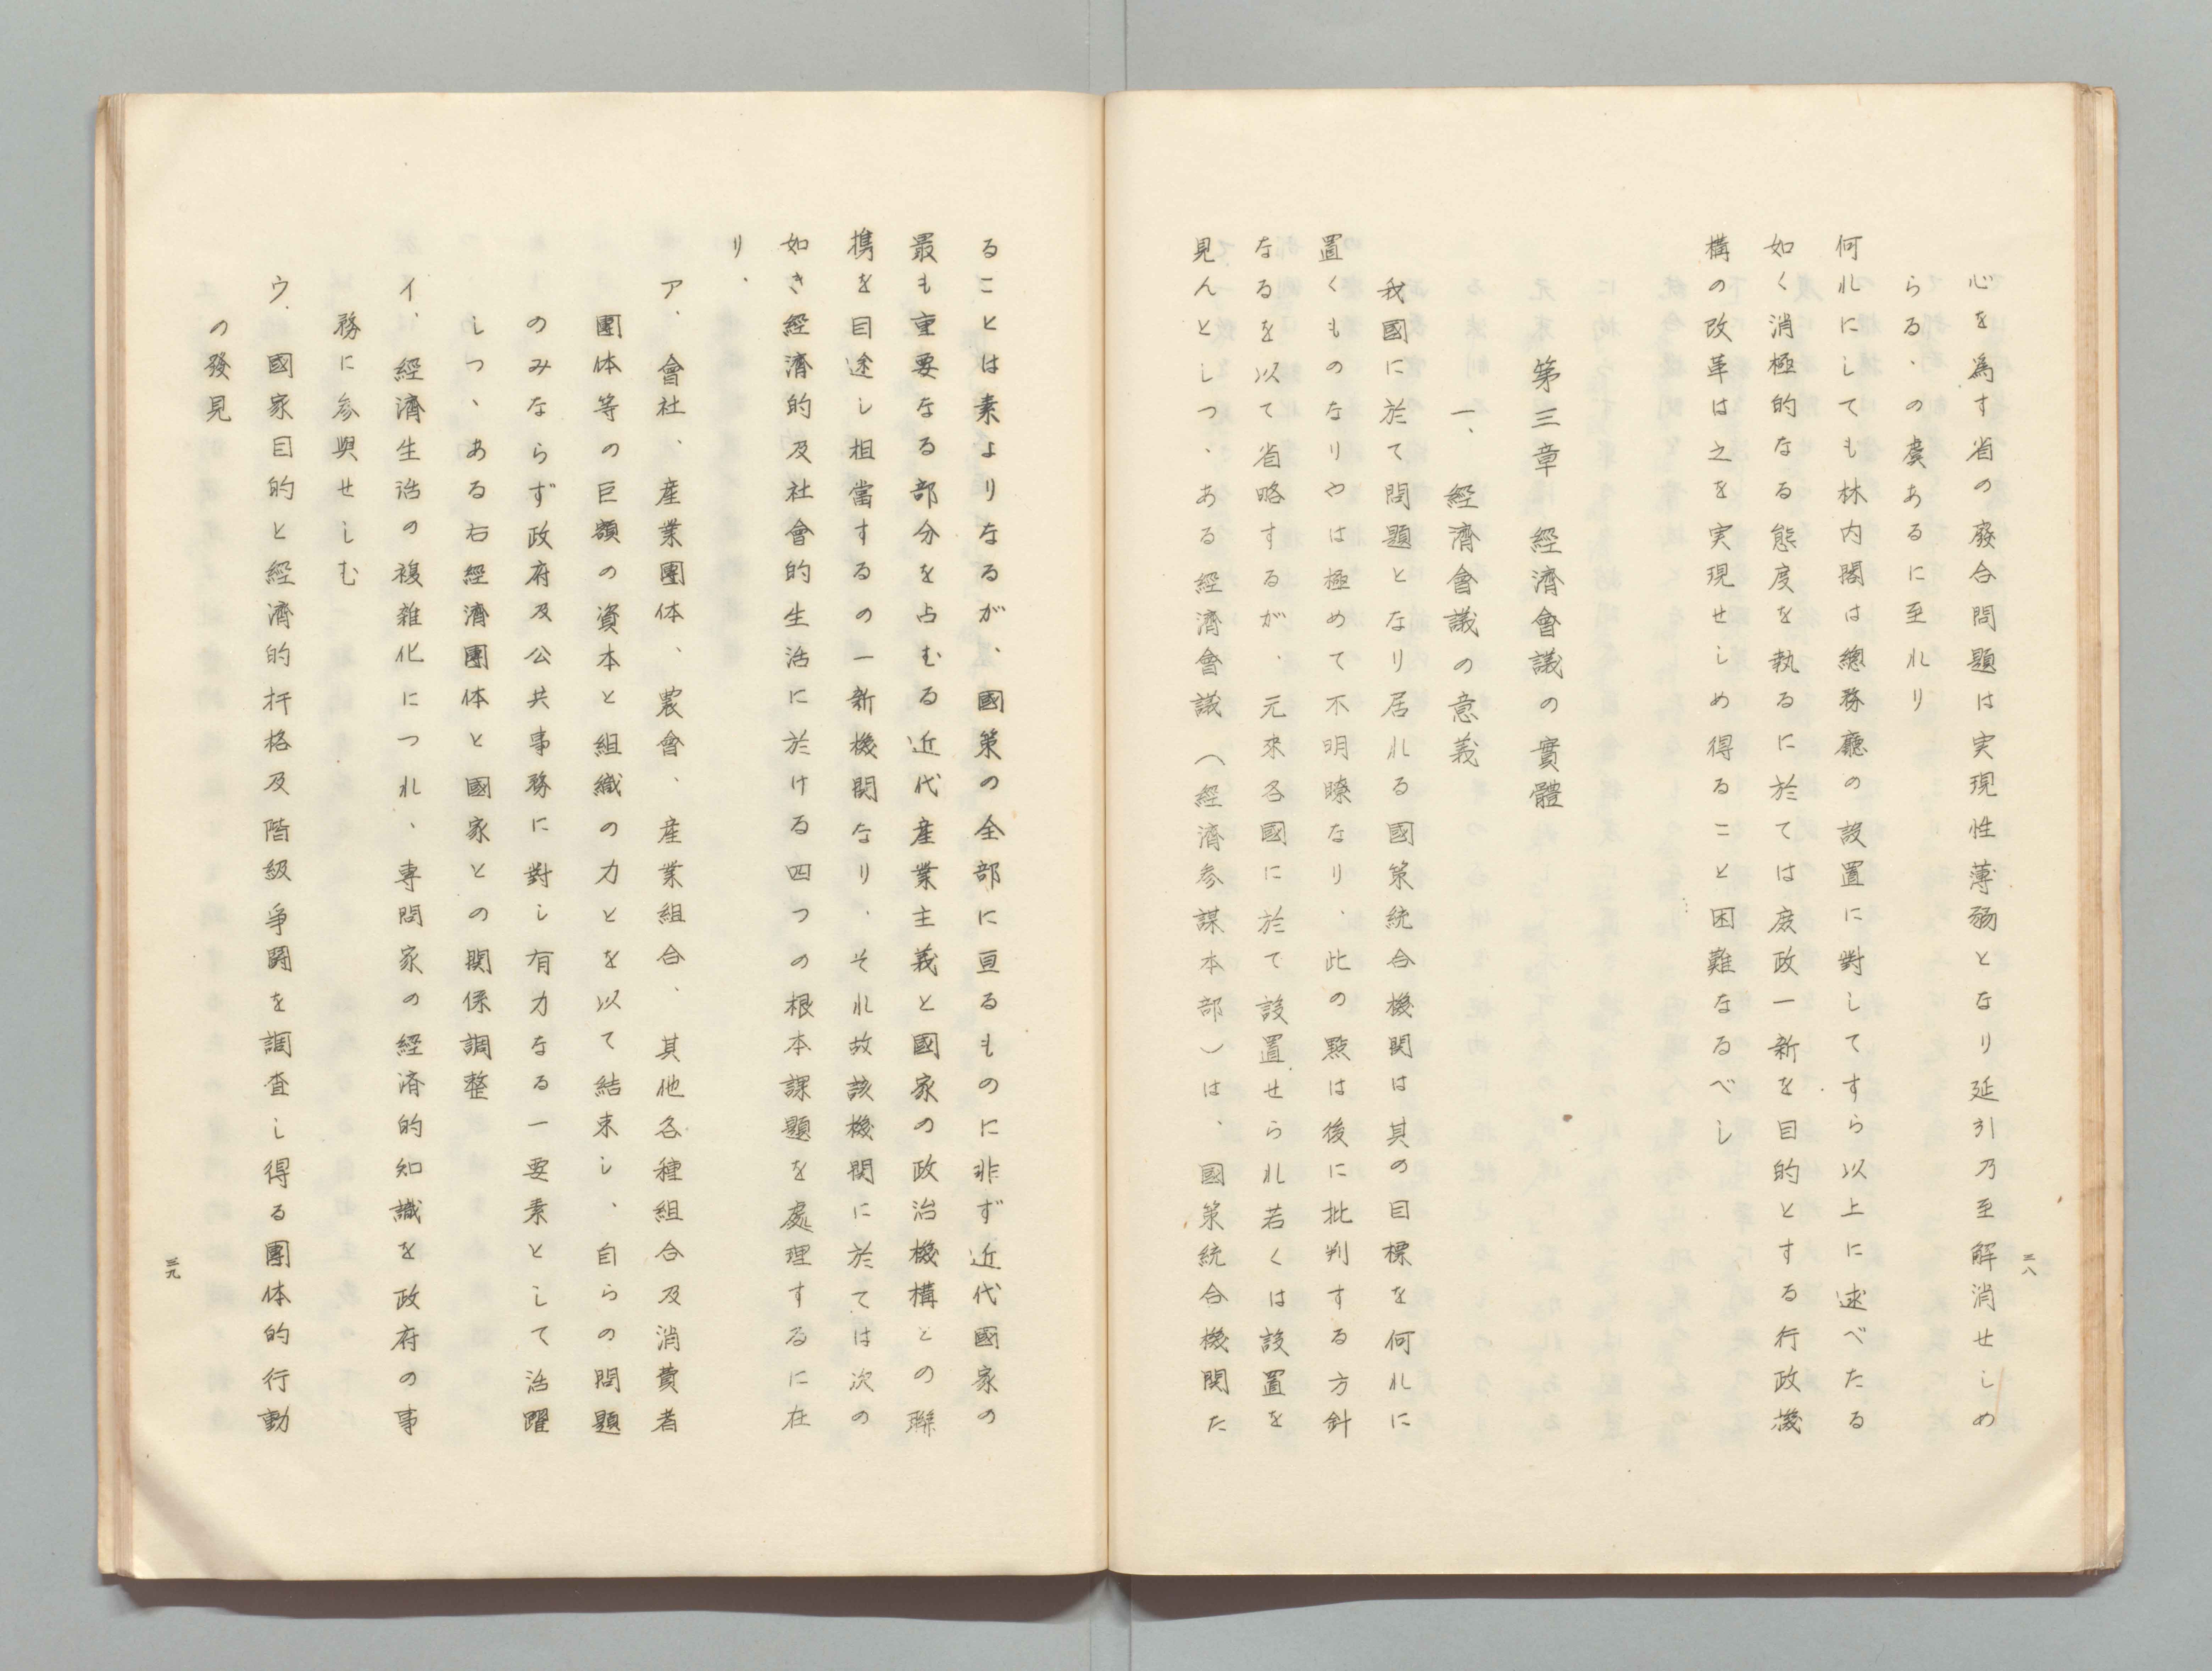 心を爲す省の廢合問題は実現性薄弱となり延引乃至解消せしめ
らるゝの虞あるに至れり
何れにしても林内閣は總務廳の設置に對してすら以上に述べたる
如く消極的なる態度を執るに於ては庶政一新を目的とする行政機
構の改革は之を実現せしめ得ること困難なるべし
第三章　經濟會議の實體
一、經濟會議の意義
我國に於て問題となり居れる國策統合機関は其の目標を何れに
置くものなりやは極めて不明瞭なり、此の點は後に批判する方針
なるを以て省略するが、元來各國に於て設置せられ若くは設置を
見んとしつゝある經濟會議（經濟参謀本部）は、國策統合機関た
三八
ることは素よりなるが、國策の全部に亘るものに非ず近代國家の
最も重要なる部分を占むる近代産業主義と國家の政治機構との聯
携を目途し相當するの一新機関なり、それ故該機関に於ては次の
如き經濟的及社會的生活に於ける四つの根本課題を處理するに在
り、
ア、會社、産業團体、農會、産業組合、其他各種組合及消費者
團体等の巨額の資本と組織の力とを以て結束し、自らの問題
のみならず政府及公共事務に對し有力なる一要素として活躍
しつゝある右經濟團体と國家との関係調整
イ、經濟生活の複雑化につれ、専問家の經済的知識を政府の事
務に参與せしむ
ウ、國家目的と經濟的扞格及階級爭鬪を調査し得る團体的行動
の發見
三九